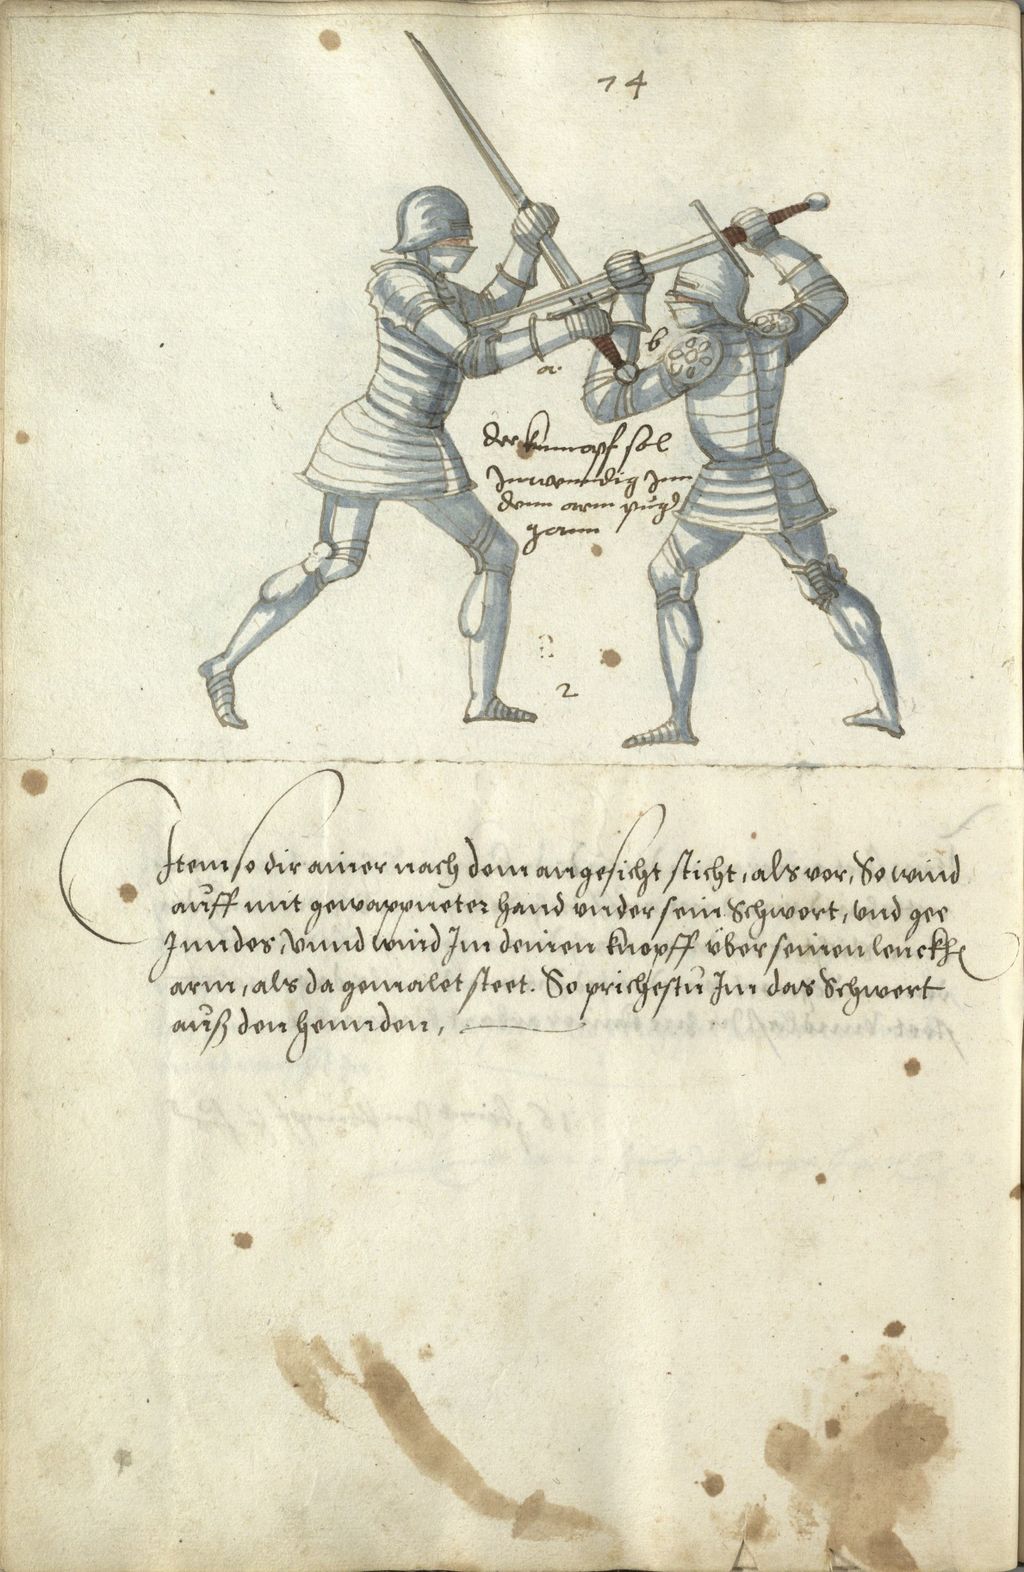 74
a.
b
der knnopf sol
Inwenndig Inn
denn arm pŭg
gann
2
Item so dir ainer nach dem angesicht sticht, als vor, So wind
aŭff mit gewappneter hand vnder sein Schwert, vnd gee
Inndes, Vnnd wind Im deinen knopff vber seinen lenckhe
arm, als da gemalet steet. So prichestŭ Im das Schwert
aŭß den hennden,